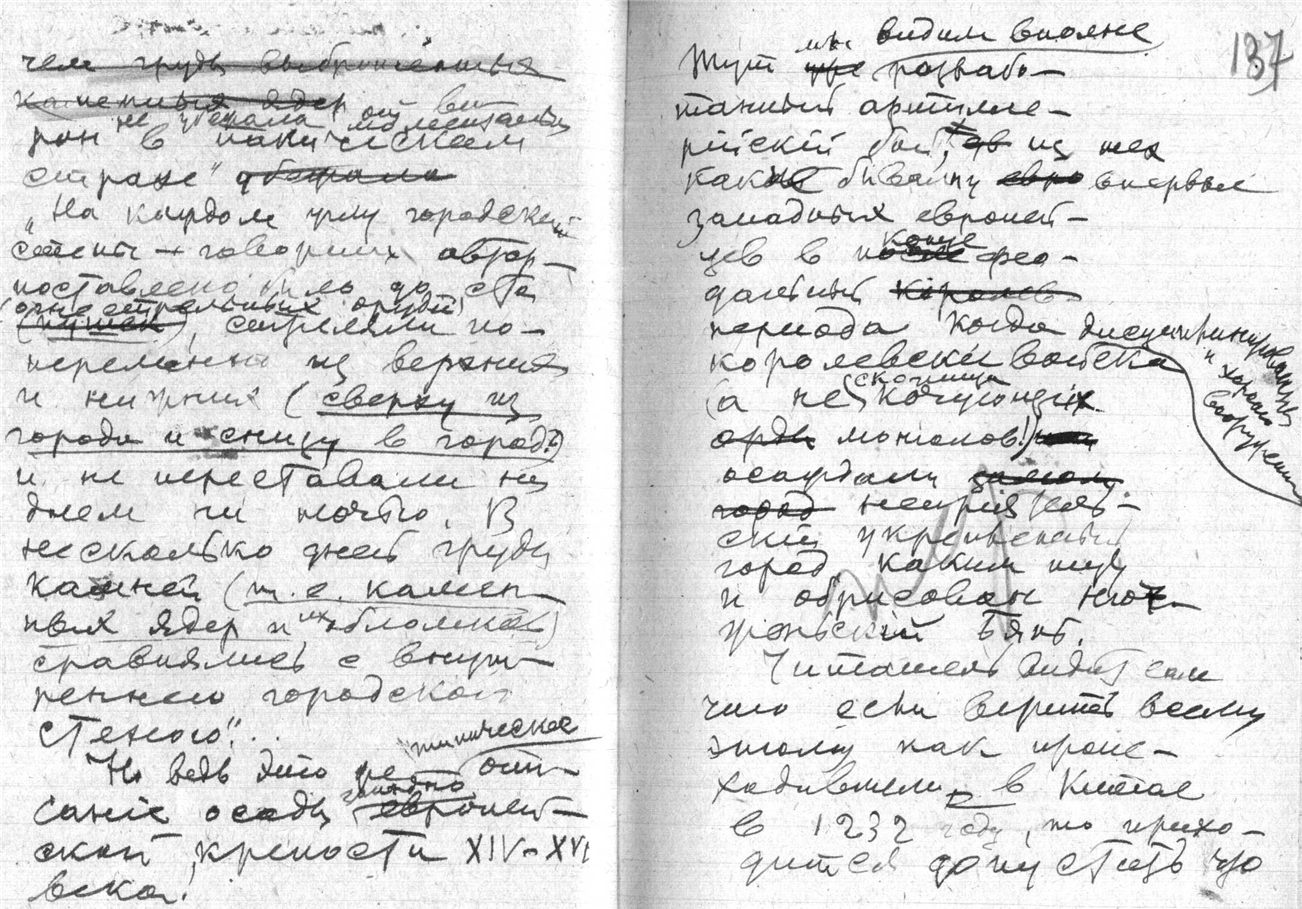 чем груды выброшенных
каменных ядер
не убежала от вн
рон в паническом
страхе" убежали
„На каждом углу городской
стены — говорит автор —
поставлено было до ста
(огнестрельных орудий)
(пушек), стреляли по-
переменно из верхних
и нижних (сверху из
города и снизу в город?)
и не переставали ни
днем ни ночью. В
несколько дней груды
камней (т. е. камен-
ных ядер и их обломков)
сравнялись с внут-
реннею городской
стеною"..
Но ведь это же типическое опи-
сание осады западно европей-
ской крепости XIV–XVI
века!
137
Тут мы видим вполне
уже разрабо-
танный артилле-
рийский бой, из них
какие бывали впервые
западных европей-
цев в конце фео-
дальный королев
периода когда дисциплинированные
и хорошо вооружен
королевския войска
(а не скопища кочующих
орды монголов!)
осаждали
город неприятель-
ский укрепленный
город, каким тут
и обрисован
Бянь.
Читатель видит сам
что если верить всему
этому как проис-
ходившему в Китае
в 1232 году, то прихо-
дится допустить что